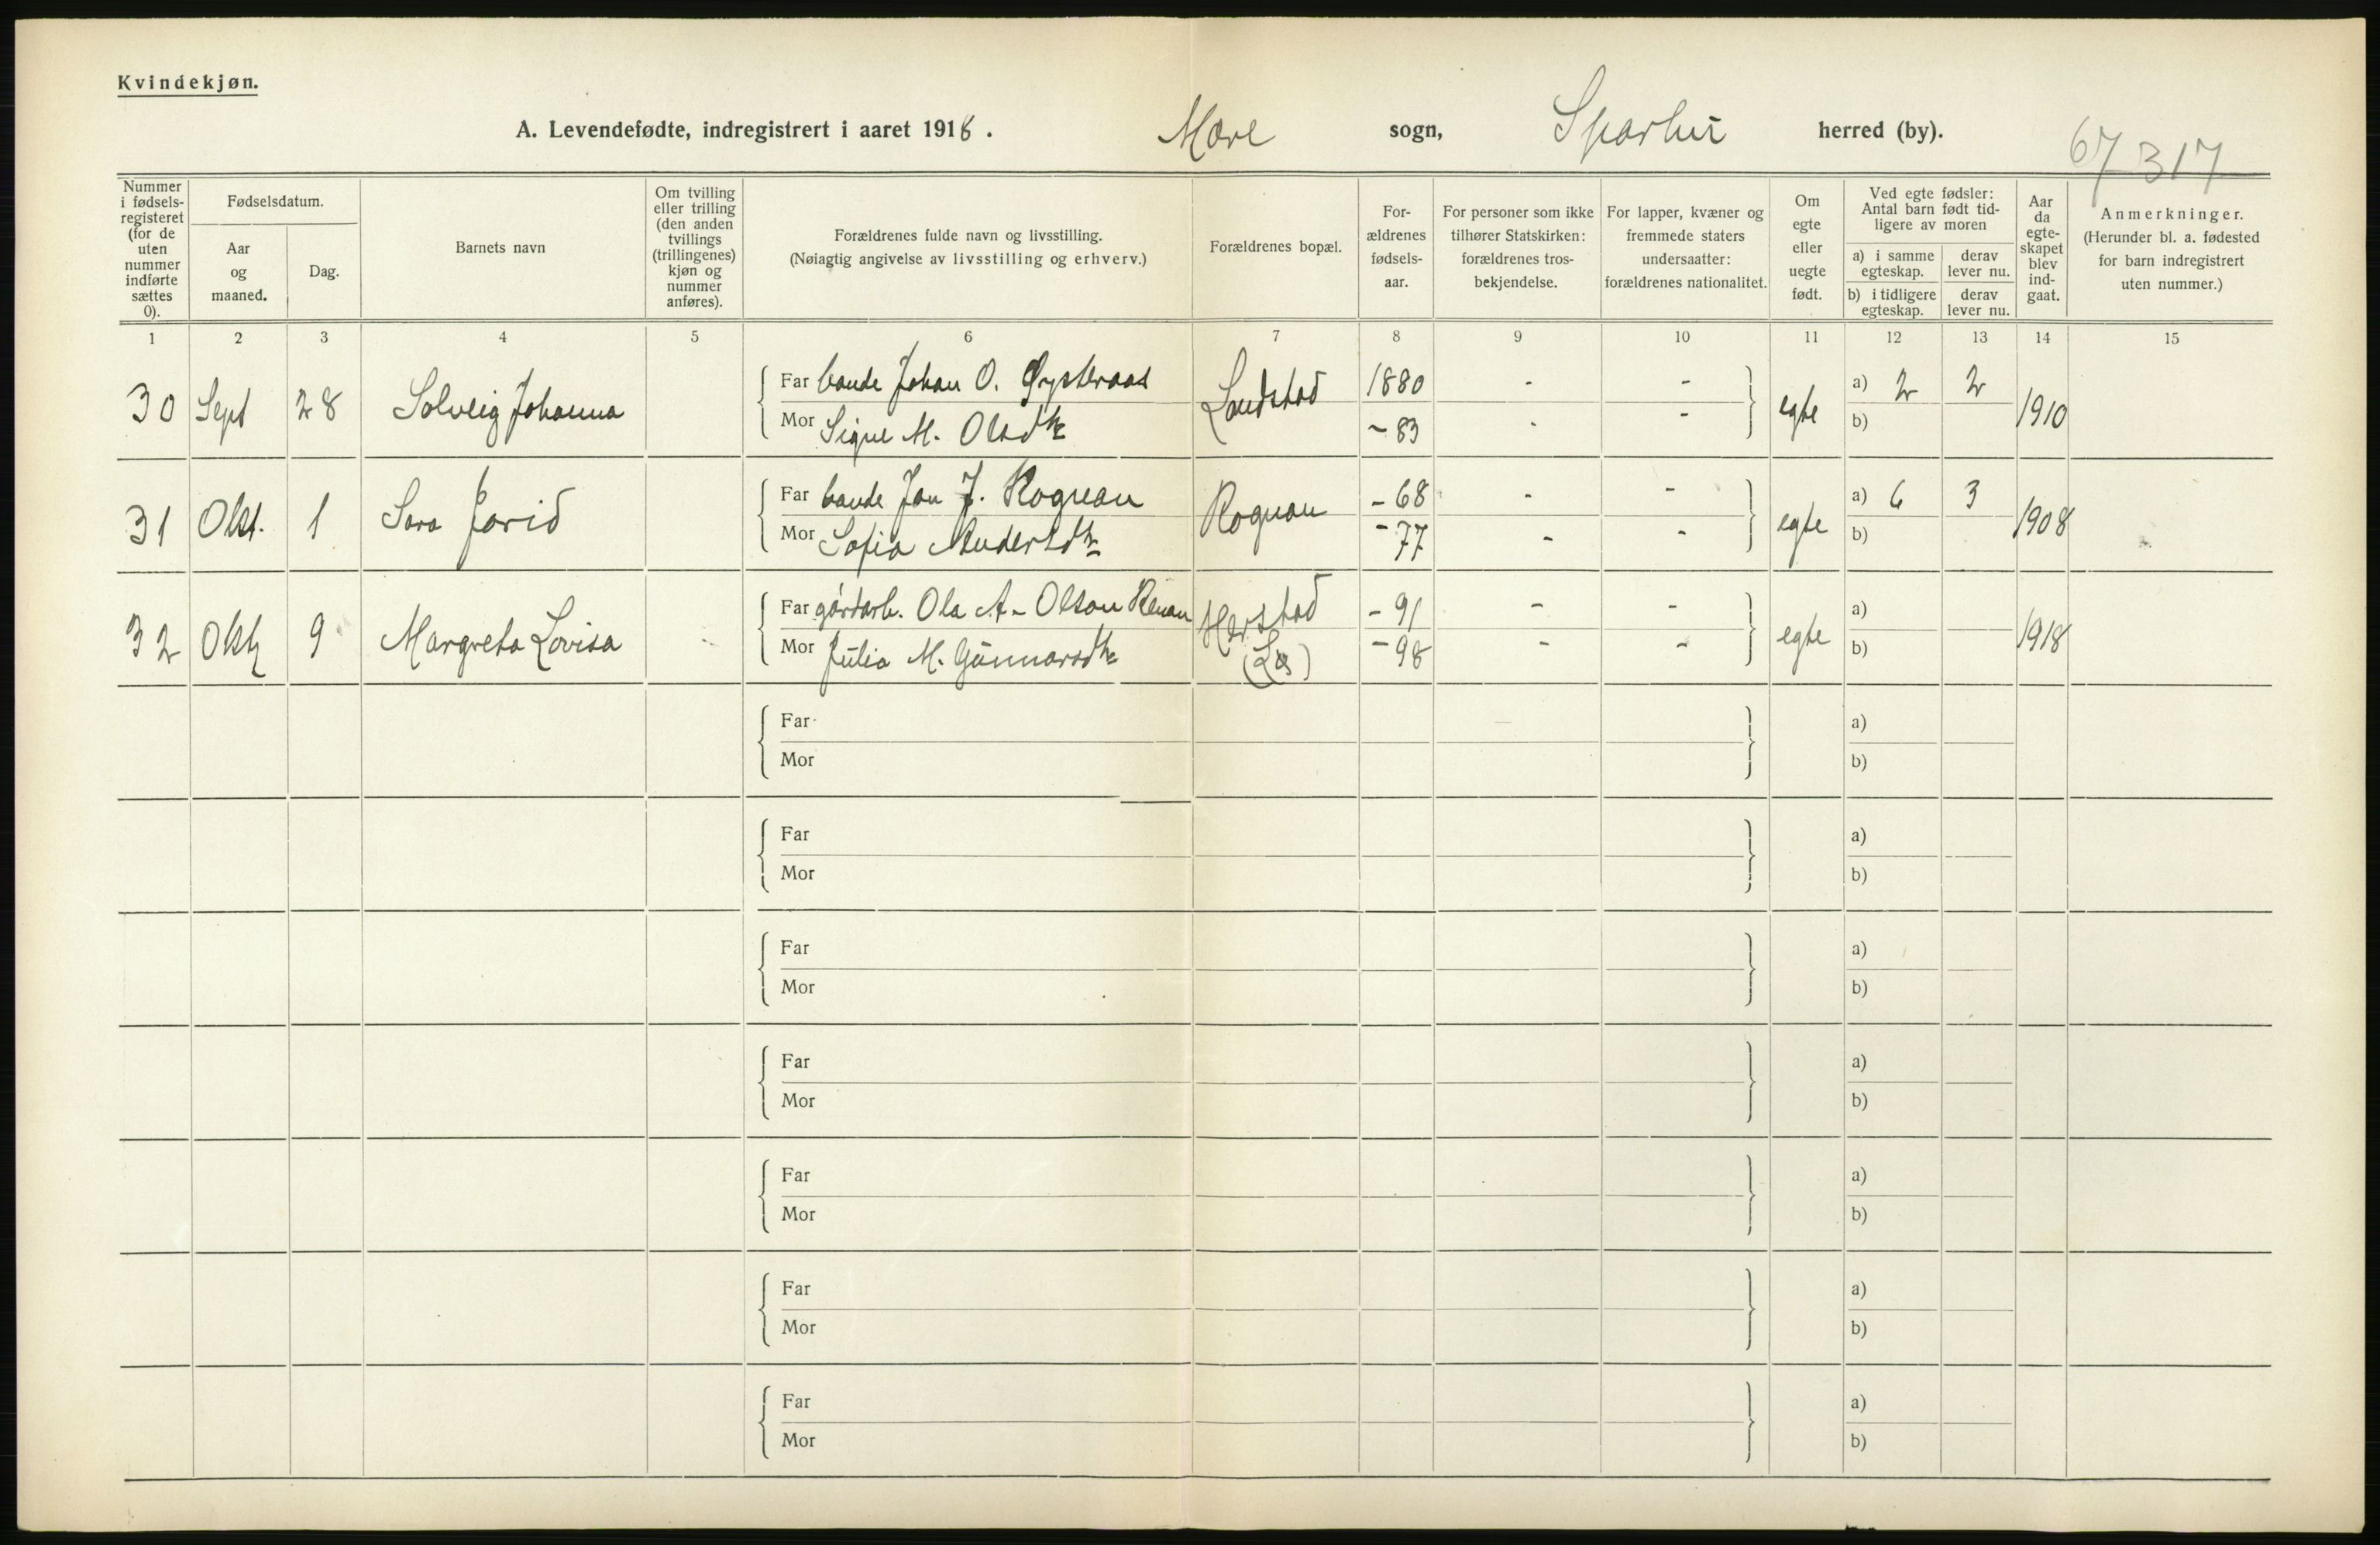 Kvindekjøn.
A. Levendefødte, indregistrert i aaret 1918. Mære sogn, Sparbu herred (by).
67 317
Nummer i fødsels-registeret (for de uten nummer indførte sættes 0).
Fødselsdatum.
Aar og maaned.
Dag.
Barnets navn
Om tvilling eller trilling (den anden tvillings (trillingenes) kjøn og nummer anføres).
Forældrenes fulde navn og livsstilling.
(Nøiagtig angivelse av livsstilling og erhverv.)
Forældrenes bopæl.
For-ældrenes fødsels-aar.
For personer som ikke tilhører Statskirken: forældrenes tros-bekjendelse.
For lapper, kvæner og fremmede staters undersaatter: forældrenes nationalitet.
Om egte eller uegte født.
Ved egte fødsler: Antal barn født tid-ligere av moren
a) i samme egteskap.
derav lever nu.
b) i tidligere egteskap.
derav lever nu.
Aar da egte-skapet blev ind-gaat.
Anmerkninger.
(Herunder bl. a. fødested for barn indregistrert uten nummer.)
1 2 3 4 5 6 7 8 9 10 11 12 13 14 15
30 Sept 28 Solveig Johanna Far bonde Johan O. Øysteraas Landstad 1880 - - egte a) 2 2 1910
Mor Signe M. Olsdtr - 83 - - b)
31 Okt. 1 Sara Jorid Far bonde Jon J. Rognan Rognan - 68 - - egte a) 6 3 1908
Mor Sofia Andersdtr - 77 - - b)
32 Okt 9 Margreta Lovisa Far gårdarb. Ola A. Olson Renan Herstad - 91 - - egte a) 1918
Mor Julia M. Gunnarsdtr - 98 - - b)
Far a)
Mor b)
Far a)
Mor b)
Far a)
Mor b)
Far a)
Mor b)
Far a)
Mor b)
Far a)
Mor b)
Far a)
Mor b)